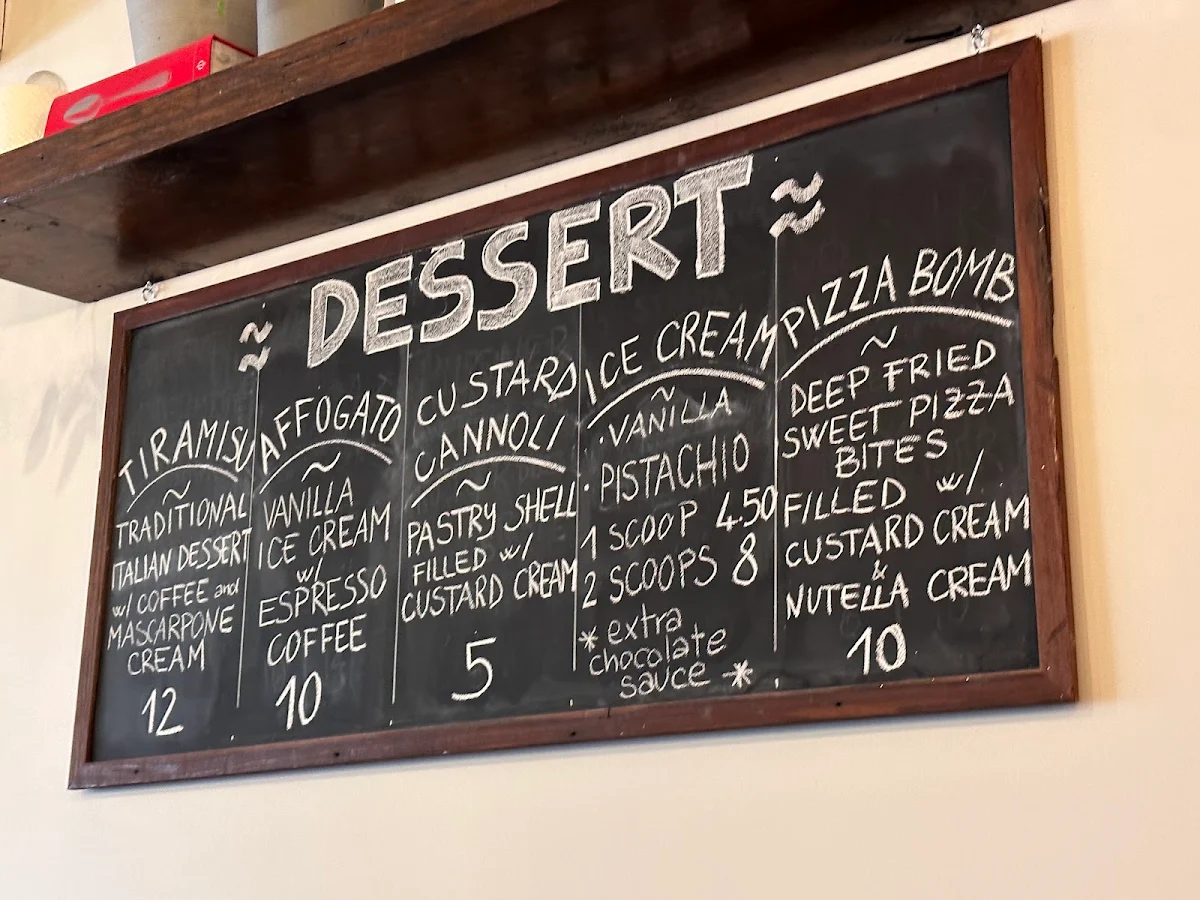 DESSERT
TIRAMISU
TRADITIONAL
ITALIAN DESSERT
w/ COFFEE and
MASCARPONE
CREAM
12
AFFOGATO
VANILLA
ICE CREAM
w/
ESPRESSO
COFFEE
10
CUSTARD
CANNOLI
PASTRY SHELL
FILLED w/
CUSTARD CREAM
5
ICE CREAM
· VANILLA
· PISTACHIO
1 SCOOP 4.50
2 SCOOPS 8
* extra
chocolate
sauce *
PIZZA BOMB
DEEP FRIED
SWEET PIZZA
BITES
FILLED w/
CUSTARD CREAM
&
NUTELLA CREAM
10